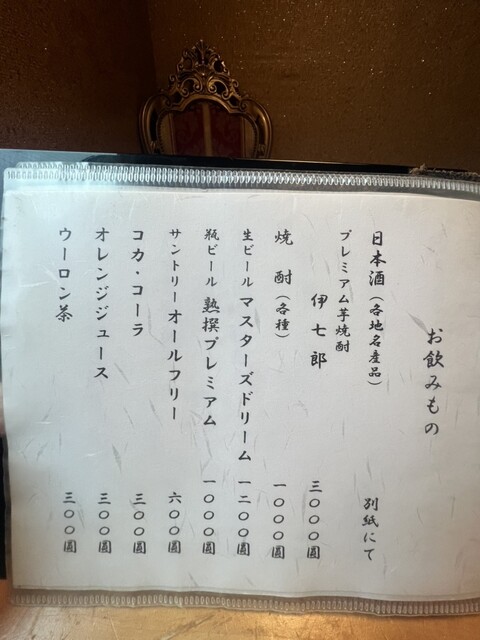 お飲みもの
日本酒（各地名産品） 別紙にて
プレミアム芋焼酎
伊七郎 三〇〇〇圓
焼酎（各種） 一〇〇〇圓
生ビール マスターズドリーム 一二〇〇圓
瓶ビール 熟撰プレミアム 一〇〇〇圓
サントリーオールフリー 六〇〇圓
コカ・コーラ 三〇〇圓
オレンジジュース 三〇〇圓
ウーロン茶 三〇〇圓